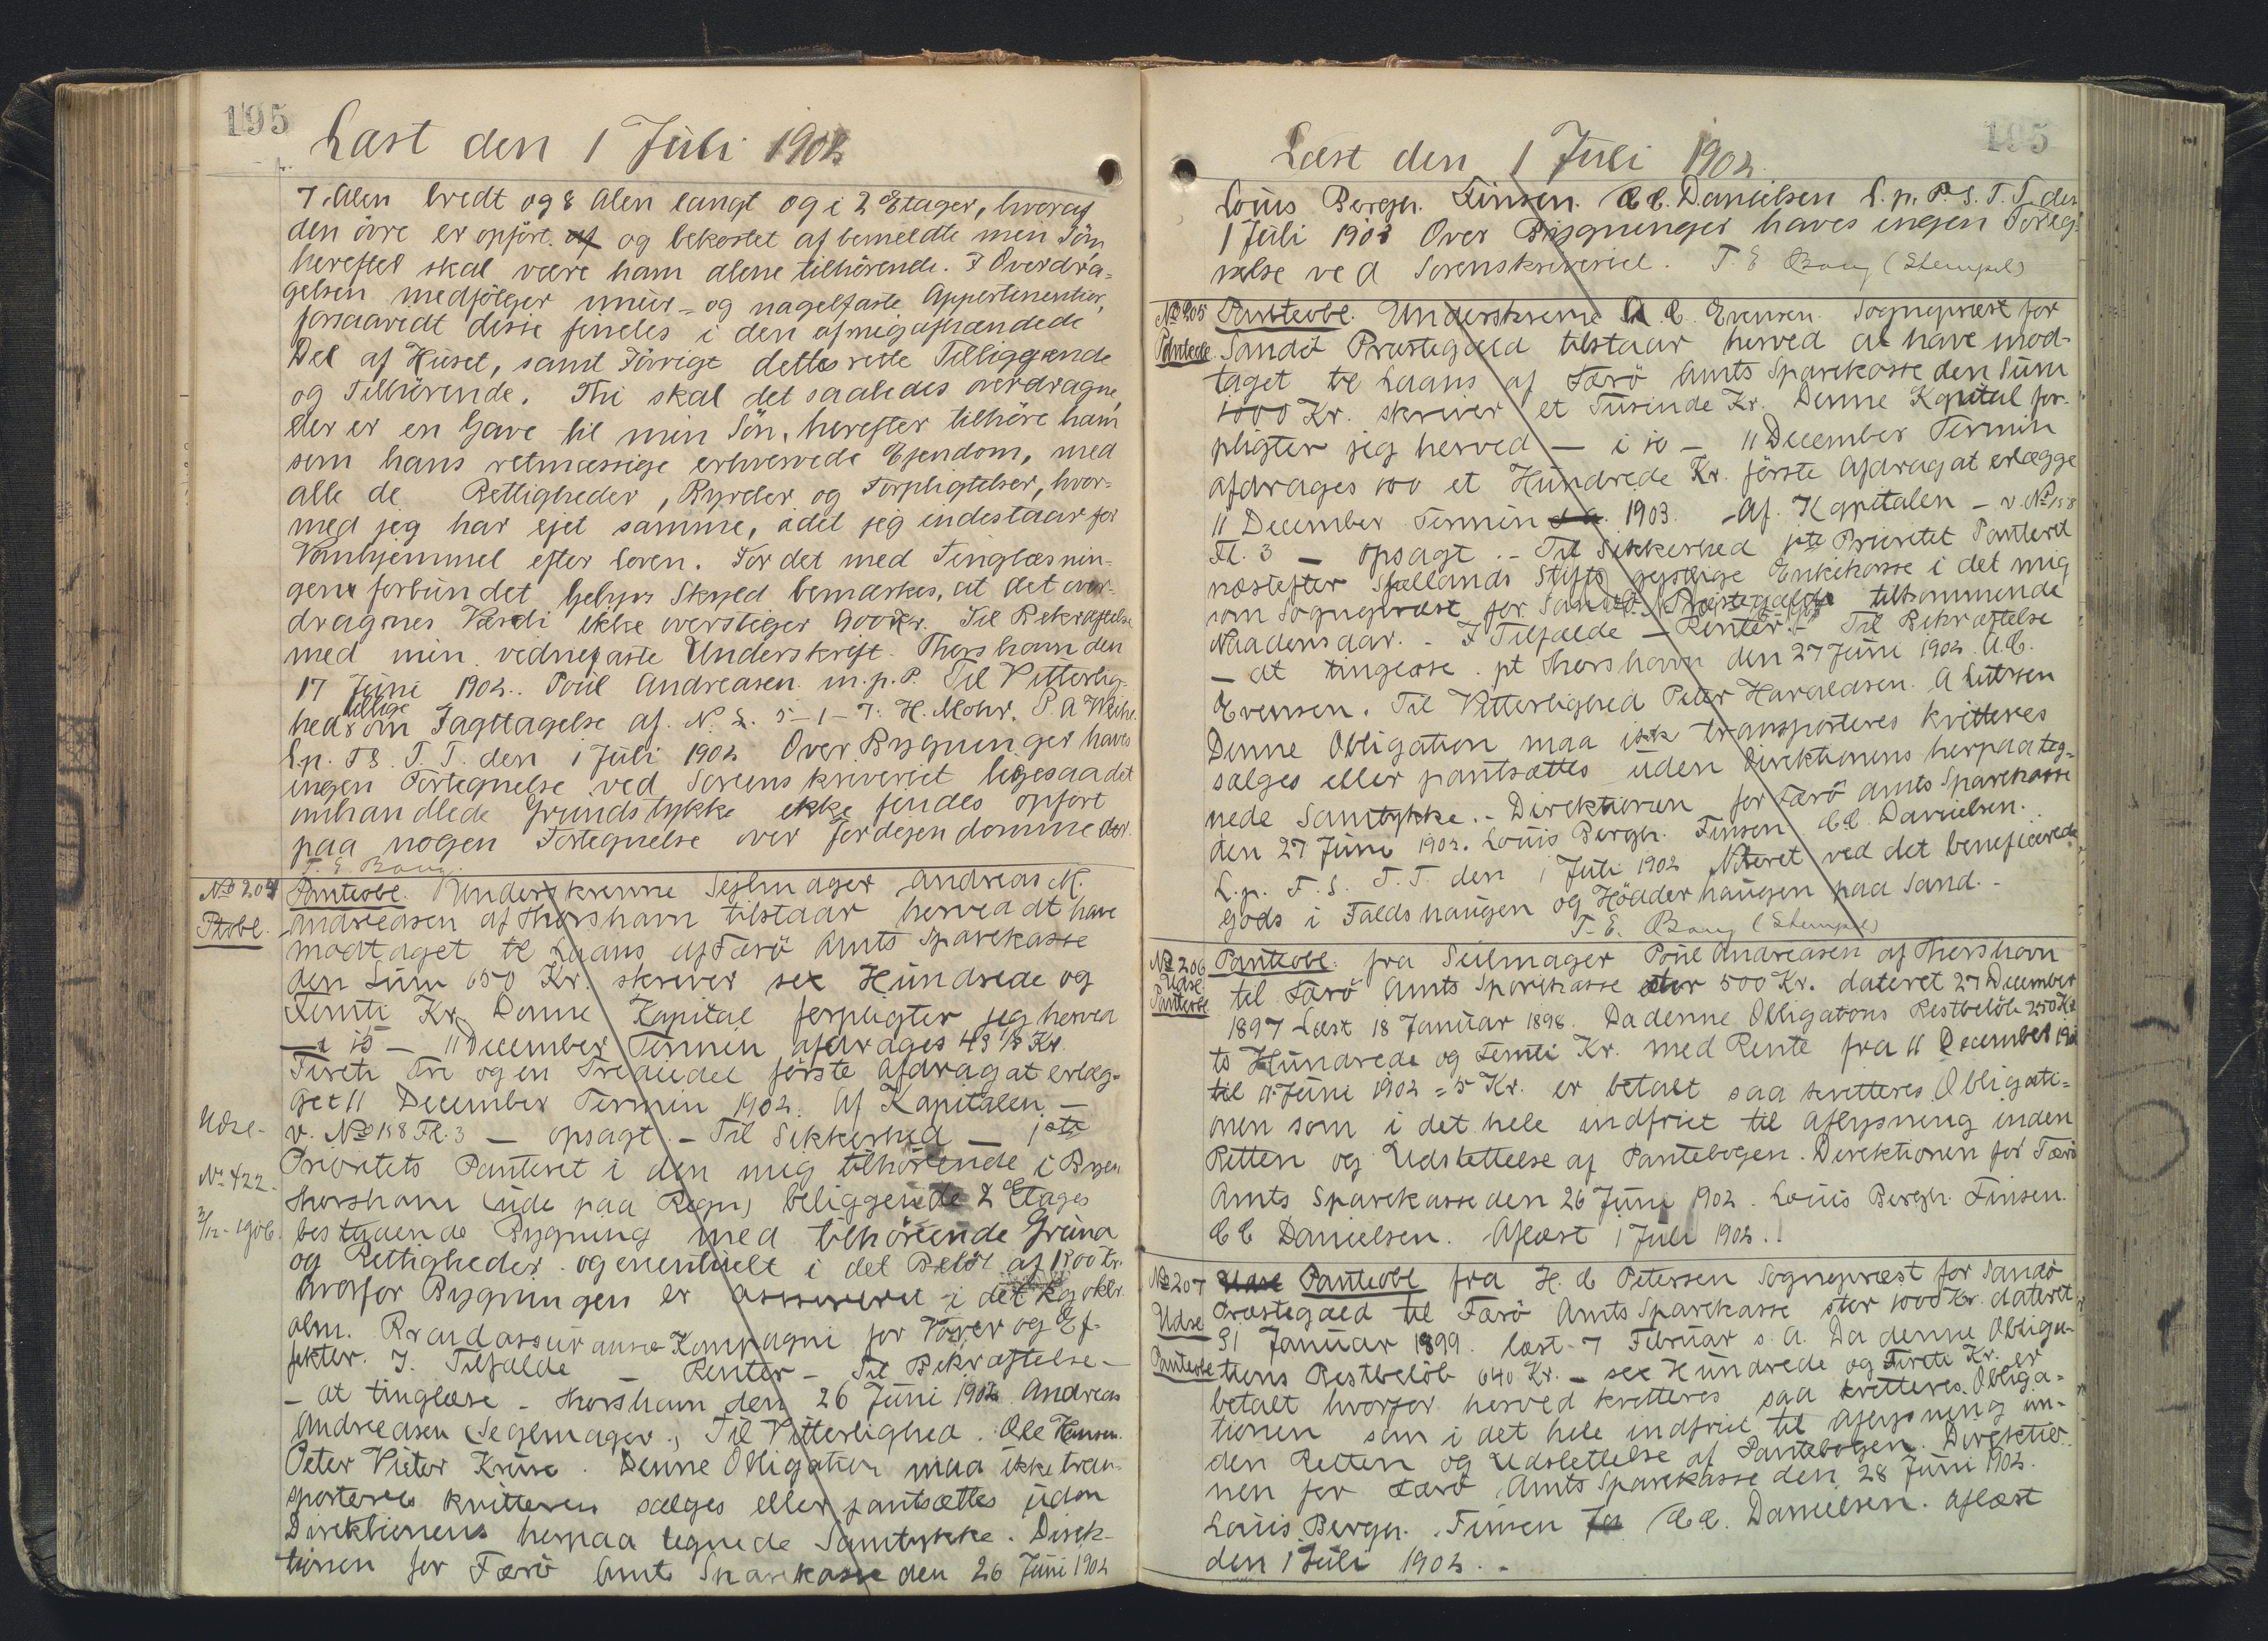 195
Læst den 1 Juli 1902
7 Alen bredt og 8 Alen langt og i 2 Etager, hvoraf
den övre er opført af og bekostet af bemeldte min Sön,
herefter skal være ham alene tilhörende. I Overdra=
gelsen medfölger muur- og nagelfaste Appertinentier,
forsaavidt disse findes i den af mig afhændede
Del af Huset, samt Iövrigt dettes rette Tilliggende
og Tilhörende. Thi skal det saaledes overdragne,
der er en Gave til min Sön, herefter tilhöre ham
som hans retmæssige erhvervede Ejendom, med
alle de Rettigheder, Byrder og Forpligtelser, hvor=
med jeg har ejet samme, idet jeg indestaar for
Vanhjemmel efter Loven. For det med Tinglæsnin-
gens forbundet Gebyrs Skyld bemærkes, at det over-
dragnes Værdi ikke overstiger 900 Kr. Til Bekræftelse
med min vidnefaste Underskrift. Thorshavn den
17 Juni 1902. Poul Andreasen m.p.P. Til Vitterlig-
hed tillige om Iagttagelse af N. L. 5-1-7. H. Mohr. P. A Weihe.
L.p. F S. T. T. den 1 Juli 1902 Over Bygninger haves
ingen Fortegnelse ved Sorenskriveriet ligesaa det
omhandlede Grundstykke ikke findes opfört
paa nogen Fortegnelse over Jordejendomme der.
T. E. Bang.
No 204
Ptobl.
Panteobl. Underskrevne Sejlmager Andreas M.
Andreasen af Thorshavn tilstaar herved at have
modtaget til Laans af Færö Amts Sparekasse
den Sum 650 Kr. skriver sex Hundrede og
Femti Kr. Denne Kapital forpligter jeg herved
- i 15 - 11 December Termin afdrages 43 1/3 Kr.
Fireti Tre og en Trediedel förste Afdrag at erlæg-
get 11 December Termin 1902. Af Kapitalen -
v. No 158 Fl. 3 - opsagt. - Til Sikkerhed - 1ste
Prioritets Panteret i den mig tilhörende i Byen
Thorshavn (ude paa Reyn) beliggende 2 Etages
bestaaende Bygning med tilhörende Grund
og Rettigheder og eventuelt i det Belöb af 1800 Kr.
hvorfor Bygningen er assureret i det Kgl oktr.
alm. Brandassurance Kompagni for Varer og Ef-
fekter. I. Tilfælde - Renter - Til Bekræftelse -
- at tinglæse - Thorshavn den 26 Juni 1902 Andreas
Andreasen (Sejlmager), Til Vitterlighed. Ole Hansen.
Peter Victor Kruse. Denne Obligation maa ikke tran-
sporteres kvitteres sælges eller pantsættes uden
Direktionens herpaa tegnede Samtykke. Direk-
tionen for Færö Amts Sparekasse den 26 Juni 1902
Udsl-
No 422.
3/12-1906.
195
Læst den 1 Juli 1902.
Louis Bergh. Finsen. C C. Danielsen L. p. F. S. T. T. den
1 Juli 1902 Over Bygninger haves ingen Forteg-
nelse ved Sorenskriveriet. T. E Bang (Stempel)
No 205
Panteobl. Underskrevne A. C. Evensen Sognepræst for
Sandö Præstegjæld tilstaar herved at have mod-
taget til Laans af Færö Amts Sparekasse den Sum
1000 Kr. skriver et Tusinde Kr. Denne Kapital for-
pligter jeg herved - i 10 - 11 December Termin
afdrages 100 et Hundrede Kr. förste Afdrag at erlægge
11 December Termin s. a. 1903. - Af Kapitalen - v. No 158
Fl. 3 - opsagt. - Til Sikkerhed 1ste Prioritet Panteret
næstefter Sjællands Stifts gejstlige Enkekasse i det mig
som Sognepræst for Sandö Præstegjæld tilkommende
Naadensaar. - I Tilfælde - Renter. - Til Bekræftelse
- at tinglæse. pt Thorshavn den 27 Juni 1902. A. C.
Evensen. Til Vitterlighed Peter Haraldsen. A Lützen
Denne Obligation maa ikke transporteres kvitteres
sælges eller pantsættes uden Direktionens herpaa teg-
nede Samtykke. - Direktionen for Færö Amts Sparekasse
den 27 Juni 1902. Louis Bergh. Finsen C C. Danielsen.
L. p. F. S. T. T. den 1 Juli 1902 Noteret ved det beneficerede
Gods i Faldshaugen og Hödderhaugen paa Sand. -
T. E. Bang (Stempel)
No 206
Udsl
Panteobl
Panteobl. fra Seilmager Poul Andreasen af Thorshavn
til Færö Amts Sparekasse stor 500 Kr. dateret 27 December
1897 Læst 18 Januar 1898. Da denne Obligations Restbelöb 250 Kr
to Hundrede og Femti Kr. med Rente fra 11 December 1901
til 11 Juni 1902 = 5 Kr. er betalt saa kvitteres Obligati=
onen som i det hele indfriet til Aflysning inden
Retten og Udslettelse af Pantebogen. Direktionen for Færö
Amts Sparekasse den 26 Juni 1902. Louis Bergh. Finsen.
C C Danielsen. Aflæst 1 Juli 1902.
No 207
Udsl
Panteobl
Udsl Panteobl fra H. C Petersen Sognepræst for Sandö
Præstegjæld til Færö Amts Sparekasse stor 1000 Kr. dateret
31 Januar 1899. læst 7 Februar s. A. Da denne Obliga-
tions Restbelöb 640 Kr. - sex Hundrede og Fireti Kr. er
betalt hvorfor herved kvitteres saa kvitteres Obliga=
tionen som i det hele indfriet til Aflysning in-
den Retten og Udslettelse af Pantebogen. Direktio-
nen for Færö Amts Sparekasse den 28 Juni 1902.
Louis Bergh. Finsen C C. Danielsen. Aflæst
den 1 Juli 1902. -